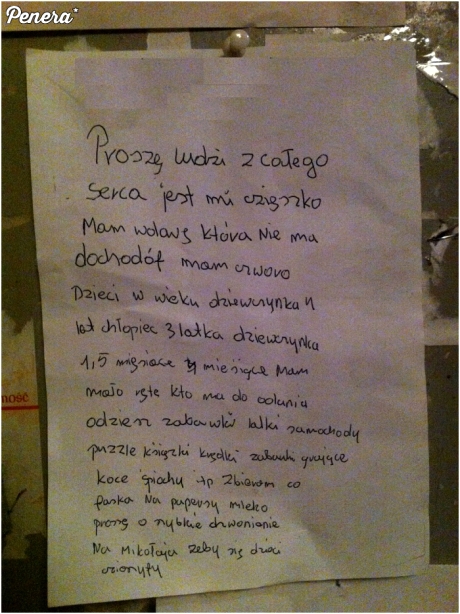 Penera*
Proszę ludzi z całego
serca jest mi cięszko
Mam wdawę która nie ma
dochodóf mam czworo
Dzieci w wieku dziewczynka 11
lat chłopiec 3 latka dziewczynka
1,5 miesiące miesiące Mam
mało rętę kto ma do odania
odziesz zabawki lalki samochody
puzzle książki krędki zabawki grające
koce śpiochy itp Zbieram co
łaska Na papersy mleko
proszę o szybkie dzwonienie
Na Mikołaja żeby się dzieci
cieszyły
ność